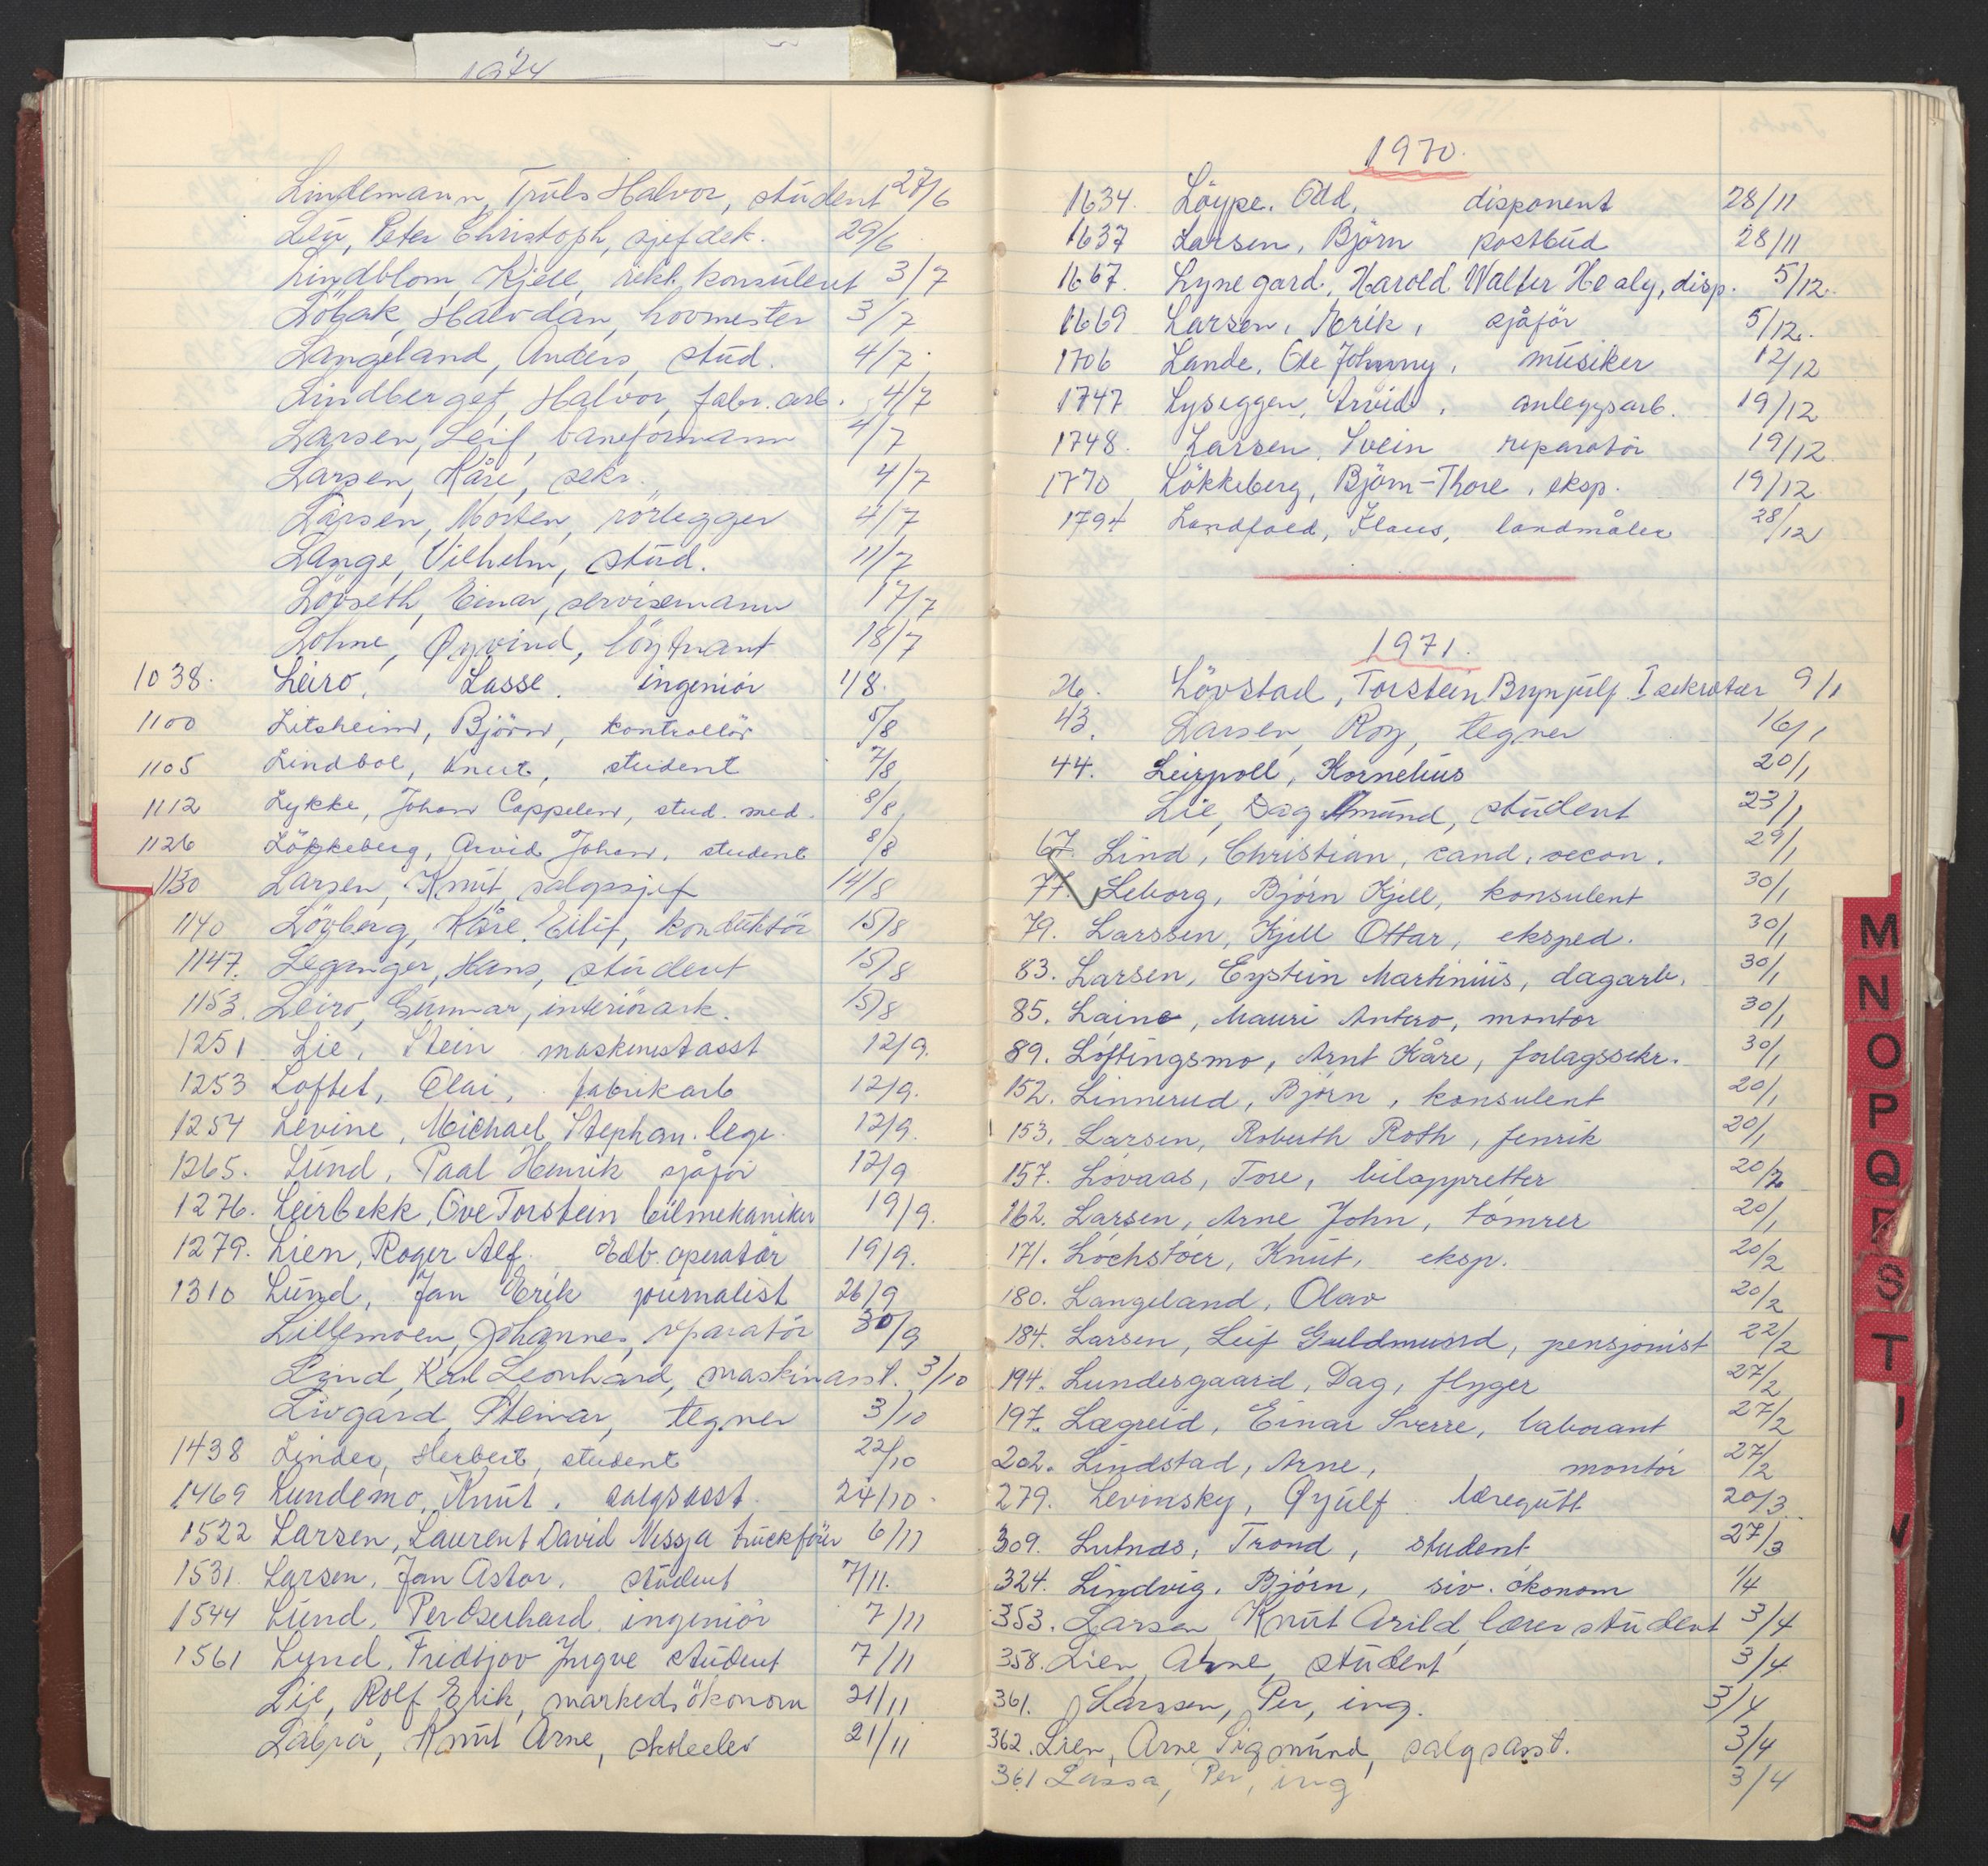 1974
Lindemann, Truls Halvor, student 27/6
Leu, Peter Christoph, sjefdek. 29/6
Lindblom, Kjell, rekl. konsulent 3/7
Löbak, Halvdan, hovmester 3/7
Langeland, Anders, stud. 4/7
Lindberget, Halvor, fabr. arb. 4/7
Larsen, Leif, baneformann 4/7
Larsen, Kåre, sekr. 4/7
Larsen, Morten, rörlegger 4/7
Lange, Vilhelm, stud. 11/7
Lövseth, Einar, servisemann 17/7
Lohne, Øyvind, löytnant 18/7
1038. Leiro, Lasse. ingeniör 1/8.
1100 Litsheim, Björn, kontrollör 5/8
1105 Lindboe, Knut, student 7/8
1112 Lykke, Johan Cappelen, stud. med. 8/8
1126 Lökkeberg, Arvid Johan, student 8/8
1130 Larsen, Knut, salgssjef 14/8
1140 Lövberg, Kåre Eilif, konduktör 15/8
1147. Leganger, Hans, student 15/8
1153. Leiro, Gunnar, interiörark. 15/8
1251 Lie, Stein maskinistasst 12/9.
1253 Loftet, Olai, fabrikarb 12/9.
1254 Levine, Michael Stephan. lege. 12/9.
1265. Lund, Paal Henrik sjåför 12/9
1276. Leirbekk, Ove Torstein bilmekaniker 19/9.
1279. Lien, Roger Alf. Edb. operatör 19/9.
1310 Lund, Jan Erik journalist 26/9
Lillemoen, Johannes, reparatör 30/9
Lind, Karl Leonhard, maskinasst. 3/10
Livgard, Steinar, tegner 3/10
1438 Linder, Herbert, student 22/10
1469 Lundemo, Knut, salgsasst. 24/10.
1522 Larsen, Laurent David Nessja truckförer 6/11
1531. Larsen, Jan Astor. student 7/11.
1544 Lund, Per Oserhard. ingeniör 7/11
1561 Lund, Fridtjov Yngve student 7/11
Lie, Rolf Erik, markedsökonom 21/11
Labrå, Knut Arne, skoleelev 21/11
1970.
1634. Löype. Odd, disponent 28/11
1637 Larsen, Björn postbud 28/11
1667. Lynegard, Harold Walter Healy, disp. 5/12.
1669 Larsen, Erik, sjåför 5/12.
1706 Lande, Ole Johnny, musiker 12/12
1747 Lyseggen, Arvid, anleggsarb. 19/12
1748. Larsen, Svein reparatör 19/12
1770 Lökkeberg, Björn-Thore, eksp. 19/12
1794 Landfald, Klaus, landmåler 28/12
1971.
26. Lövstad, Torstein Brynjulf I sekretær 9/1
43. Larsen, Roy, tegner 16/1
44. Leirpoll, Kornelius 20/1
Lie, Dag Amund, student 23/1
67. Lind, Christian, cand. oecon. 29/1
77. Leborg, Björn Kjell, konsulent 30/1
79. Larssen, Kjell Ottar, eksped. 30/1
83. Larsen, Eystein Martinius, dagarb. 30/1
85. Laine, Mauri Antero, montör 30/1
89. Löftingsmo, Arnt Kåre, forlagssekr. 30/1
152. Linnerud, Björn, konsulent 20/1
153. Larsen, Roberth Roth, fenrik 20/1
157. Lövaas, Tore, biloppretter 20/2
162. Larsen, Arne John, tömrer 20/1
171. Lochstöer, Knut, eksp. 20/2
180. Langeland, Olav 20/2
184. Larsen, Leif Guldmund, pensjonist 22/2
194. Lundesgaard, Dag, flyger 27/2
197. Lægreid, Einar Sverre, laborant 27/2
202. Lindstad, Arne, montör 27/2
279. Levinsky, Øyulf læregutt 20/3.
309. Lutnæs, Trond, student 27/3
324. Lindvig, Björn, siv. ökonom 1/4
353. Larsen Knut Arild lærerstudent 3/4
358. Lien, Arne, student 3/4
361. Larssen, Per, ing. 3/4
362. Lien, Arne Sigmund, salgsasst. 3/4
361 Lassa, Per, ing 3/4
M
N
O
P
Q
R
S
T
U
V